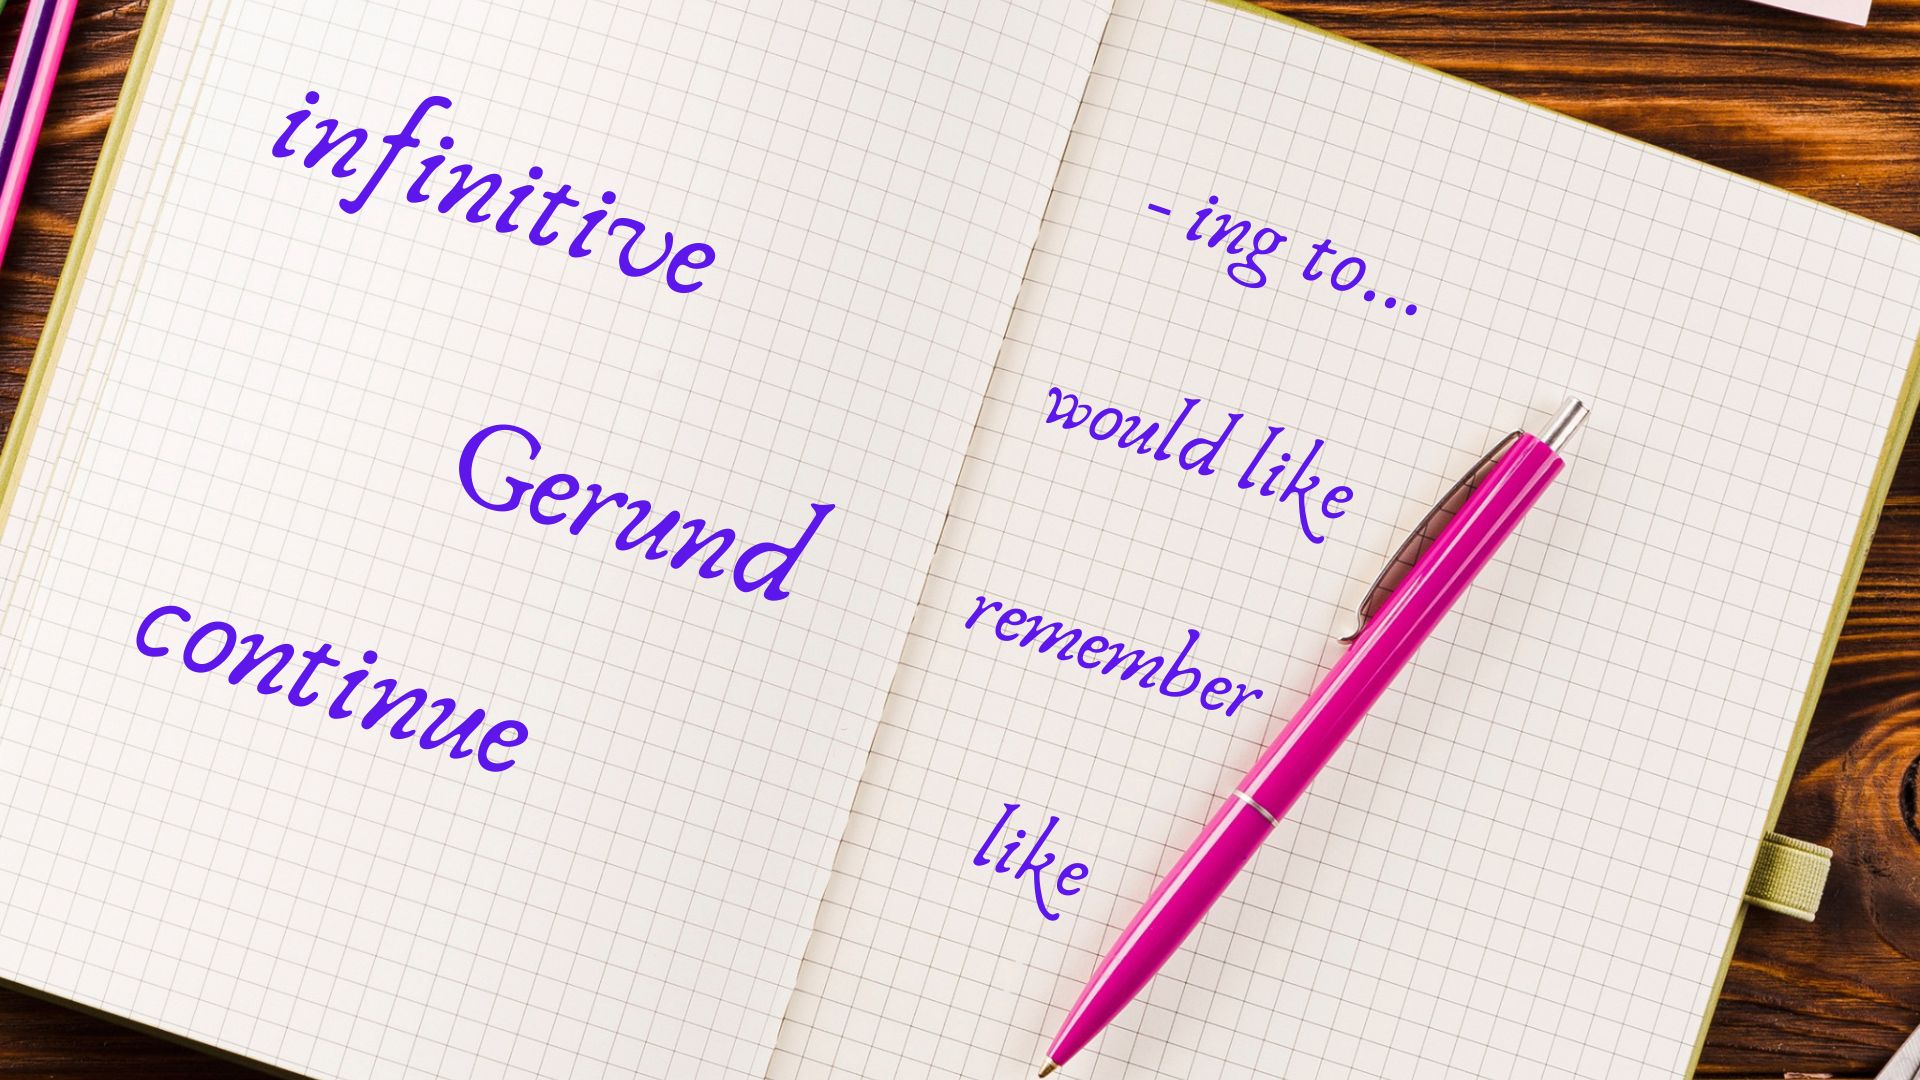 infinitive
Gerund
continue
- ing to...
would like
remember
like